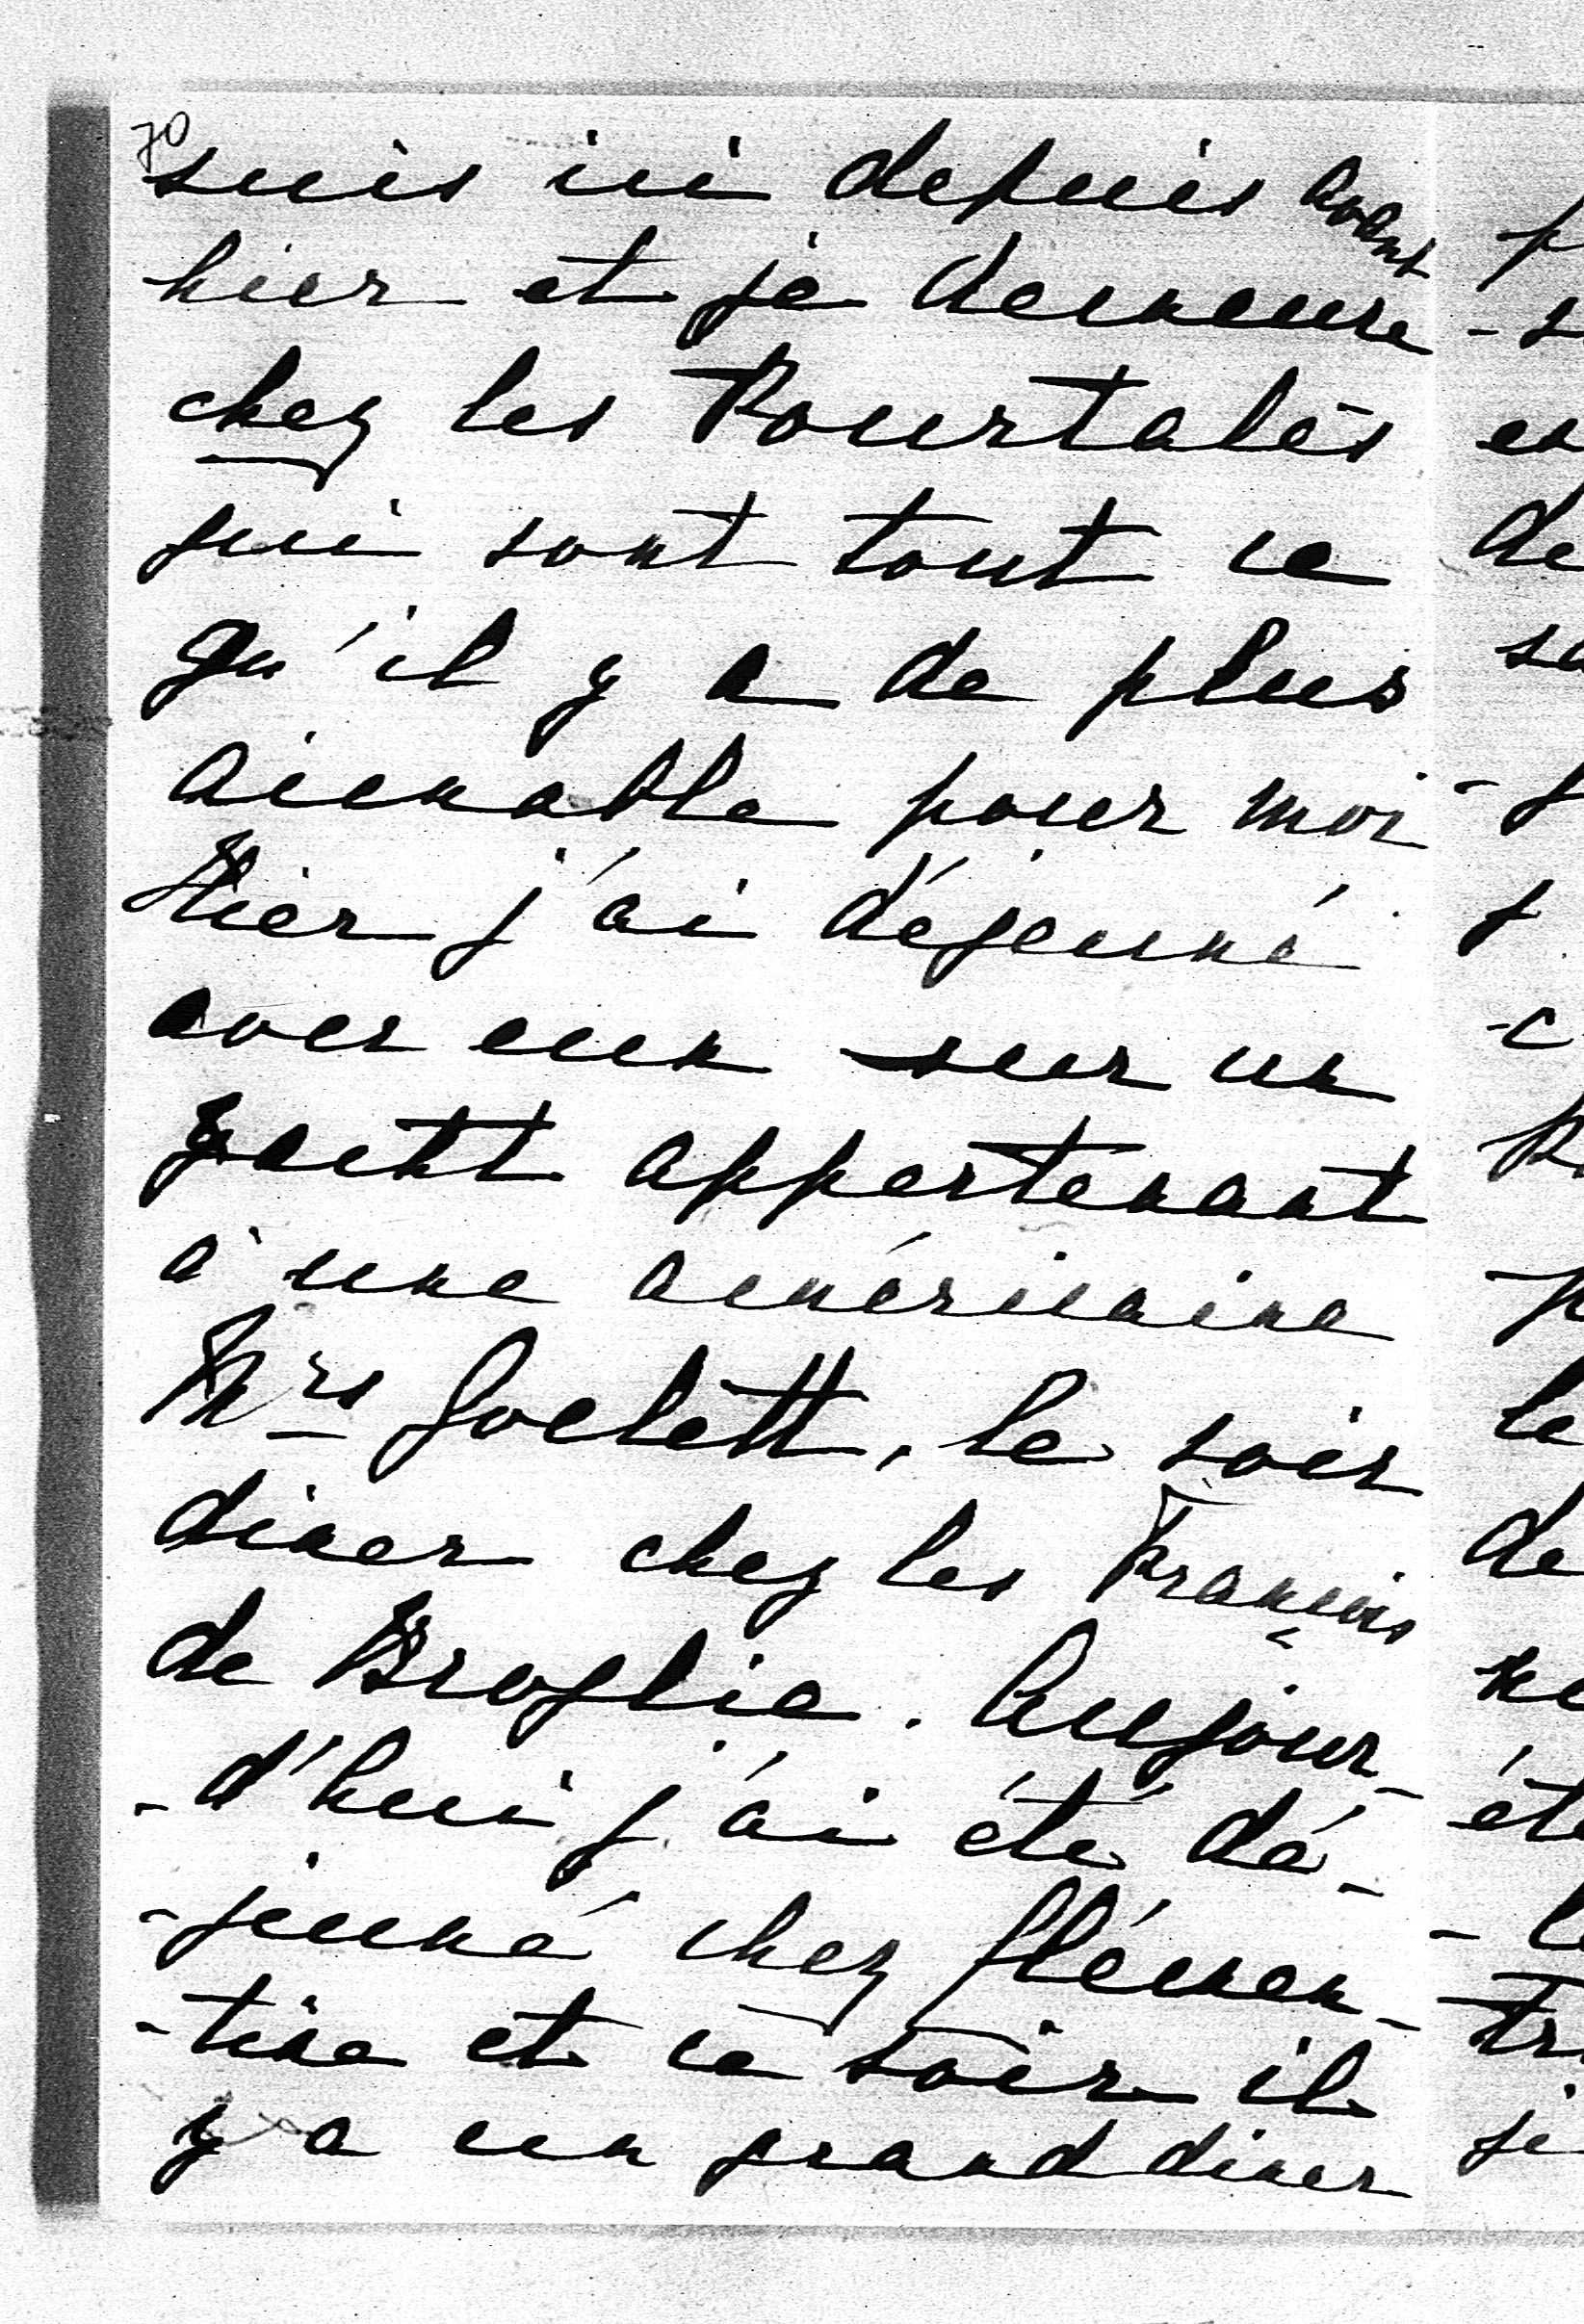 70
suis ici depuis avant
hier et je demeure
chez les Pourtalès
qui sont tout ce
qu'il y a de plus
aimable pour moi
Hier j'ai déjeuné
avec eux sur un
yacht appartenant
à une américaine
Mrs Goelett, le soir
diner chez les François
de Broglie. Aujour-
-d'hui j'ai été dé-
-jeuné chez Clémen-
-tine et ce soir il
y a un grand diner